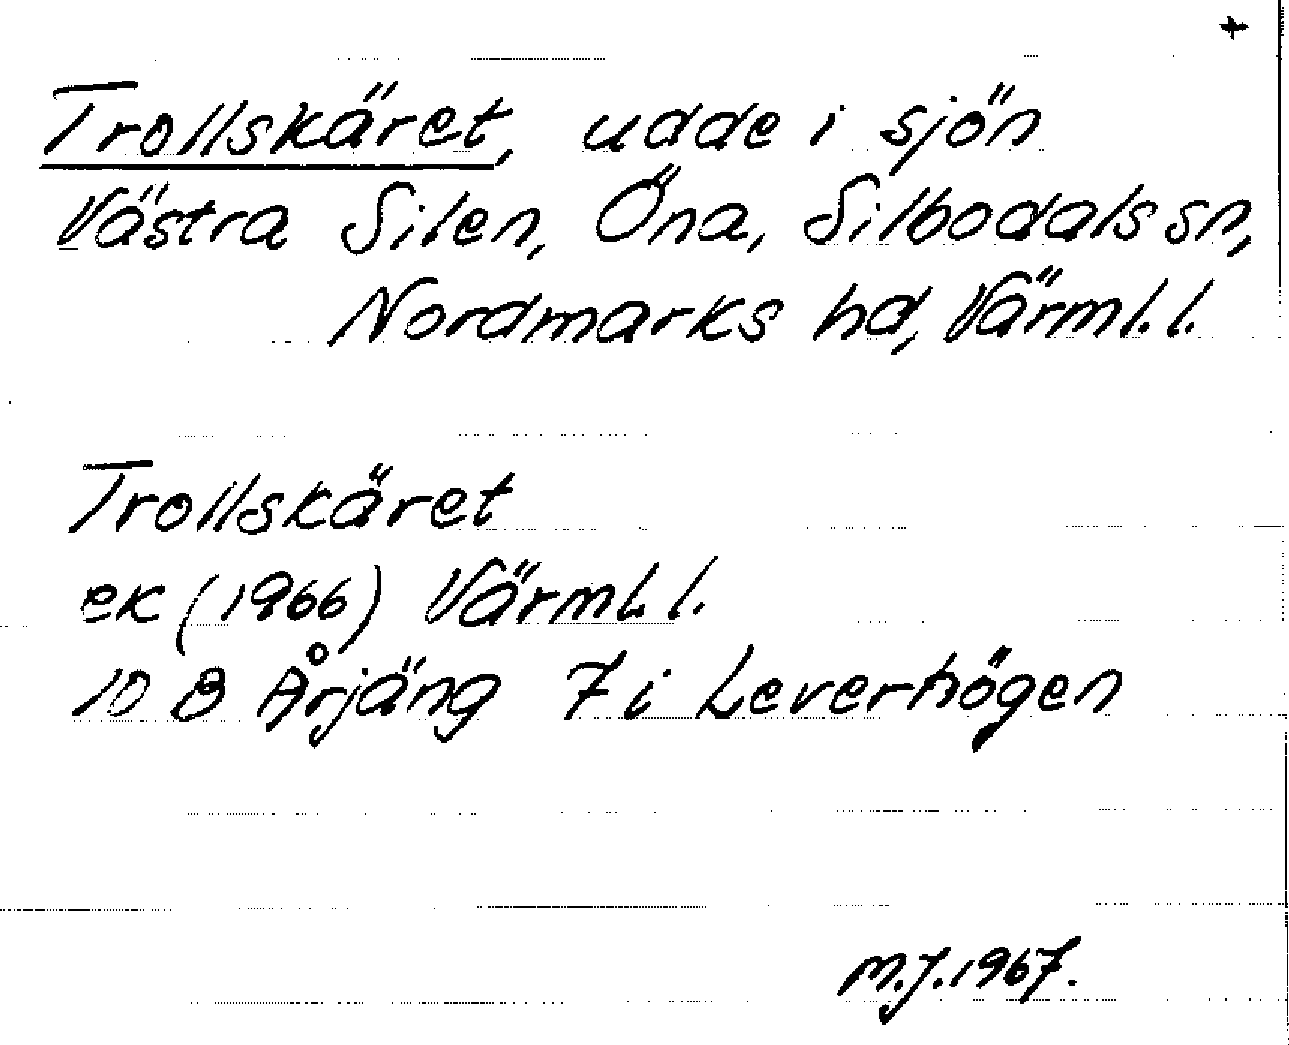 +
Trollskäret, udde i sjön
Västra Silen, Öna, Silbodals sn,
Nordmarks hd, Värml. l.
Trollskäret
ek (1966) Värml. l.
10 B Årjäng 7 i Leverhögen
M.J. 1967.